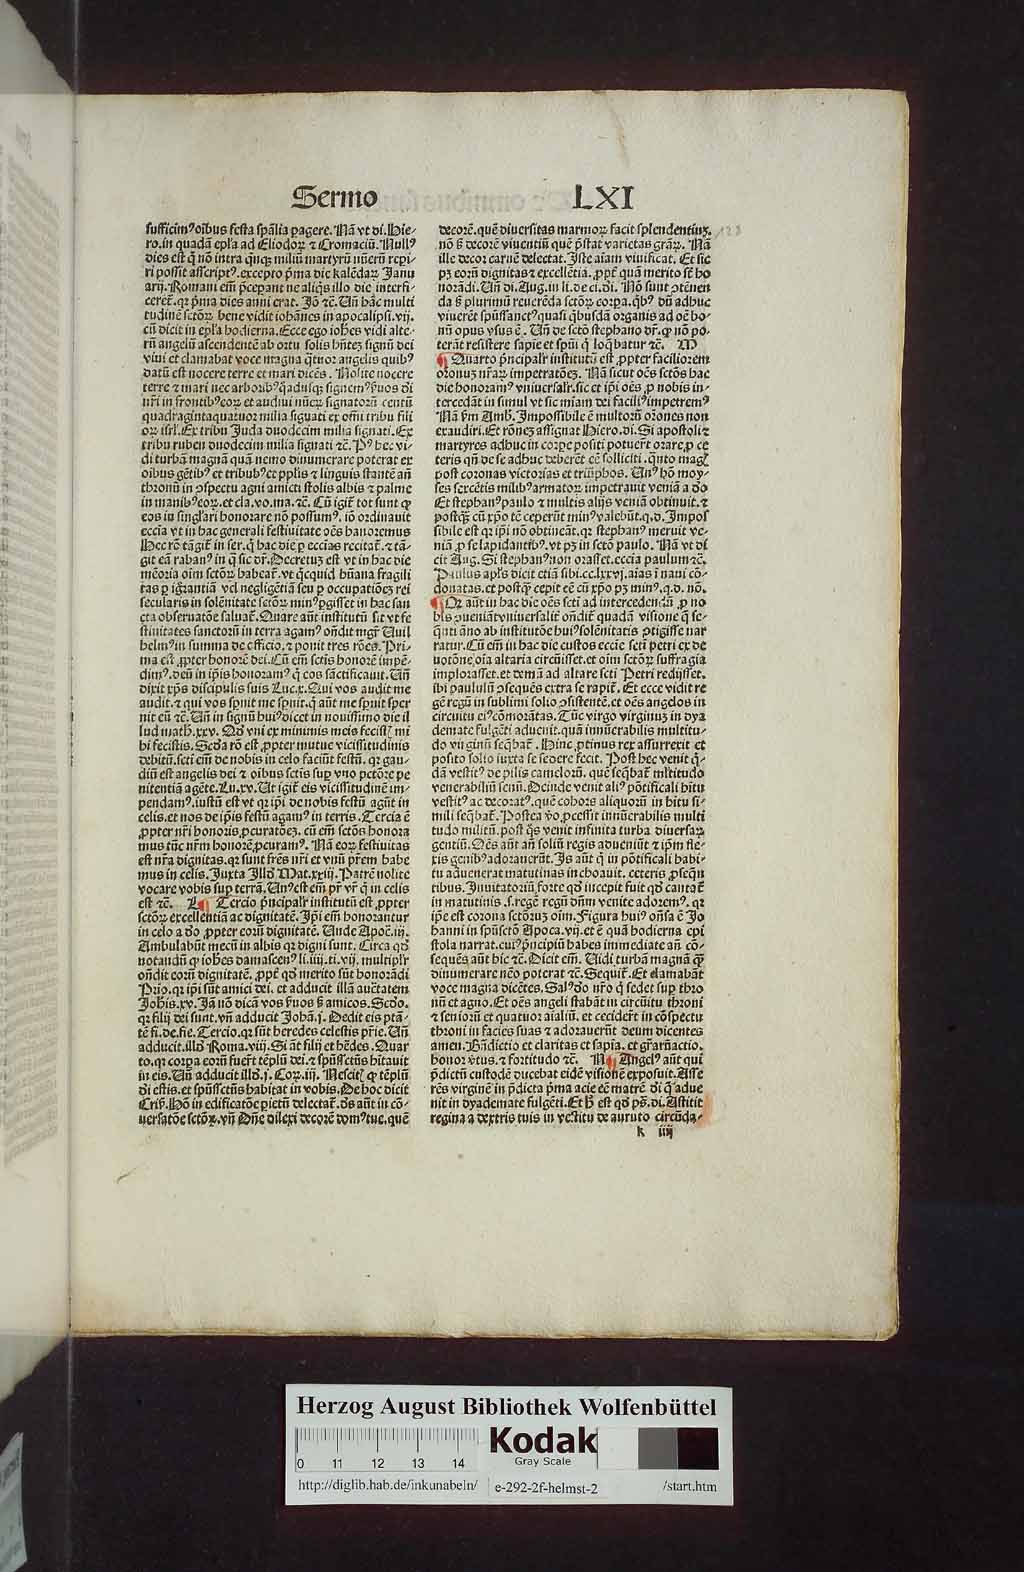 Sermo LXI
sufficimꝰ oībus festa spālia pagere. Nā vt di. Hie-
ro. in quadā epl'a ad Eliodoꝝ ⁊ Cromaciū. Nullꝰ
dies est ꝗ nō intra qnqꝫ miliū martyrū nūerū repi-
ri possit ascriptꝰ. excepto pma die kalēdaꝝ Janu
arij. Romani em̄ pcepant ne aliqs illo die interfi-
ceret. qꝛ pma dies anni erat. Jō ⁊c. Uñ hāc multi
tudinē sctōꝝ bene vidit iohānes in apocalipsi. vij.
cū dicit in epl'a hodierna. Ecce ego ioh̄es vidi alte-
rū angelū ascendentē ab ortu solis hñtez signū dei
viui et clamabat voce magna qtuor angelis quibꝰ
datū est nocere terre et mari dicēs. Nolite nocere
terre ⁊ mari nec arboribꝰ qadusqꝫ signemꝰ suos di
nr̄i in frontibꝰ eoꝝ et audiui nūeꝝ signatoꝝ centū
quadragintaquatuor milia signati ex om̄i tribu fili
oꝝ isrl'. Ex tribu Juda duodecim milia signati. Ex
tribu ruben duodecim milia signati ⁊c. Pꝰ hec vi-
di turbā magnā quā nemo dinumerare poterat ex
oibus gētibꝰ et tribubꝰ et pplis ⁊ linguis stantē añ
thronū in ꝯspectu agni amicti stolis albis ⁊ palme
in manibꝰ eoꝝ. et cla. vo. ma. ⁊c. Cū igit̄ tot sunt ꝙ
eos in singlari honorare nō possumꝰ. iō ordinauit
eccīa vt in hac generali festiuitate oēs hanoremus
Hec rē tāgit̄ in ser. q̄ hac die p eccīas recitat̄. ⁊ tā-
git eā rabanꝰ in q̄ sic dr̄. Decretuz est vt in hac die
mēoria oīm sctōꝝ habeat̄. vt qcquid hūana fragili
tas p igrantiā vel negligētiā seu p occupatiōez rei
secularis in solēnitate sctōꝝ minꝰ pgisset in hac san
cta obseruatōe saluat̄. Quare aūt institutū sit vt fe
stiuitates sanctorū in terra agamꝰ oñdit mgr̄ Wil
helmꝰ in summa de officio. ⁊ ponit tres rōes. Pri-
ma est ꝓpter honorē dei. Cū em̄ sctīs honorē impē-
dimꝰ. deū in ip̄is honoramꝰ q̄ eos sāctificauit. Uñ
dixit xp̄s discipulis suis Luc. x. Qui vos audit me
audit. ⁊ qui vos spnit me spnit. q̄ aūt me spnit sper
nit eū ⁊c. Uñ in signū huiꝰ dicet in nouissimo die il
lud math. xxv. Qd̄ vni ex minimis meis fecistꝫ mi
hi fecistis. Scda rō est ꝓpter mutue vicissitudinis
debitū. scti em̄ de nobis in celo faciūt festū. qꝛ gau-
diū est angelis dei ⁊ oibus sctīs sup vno pctōre pe
nitentiā agēte. Lu. xv. Ut igit̄ eis vicissitudinē im-
pendamꝰ. iustū est vt qꝛ ip̄i de nobis festū agūt in
celis. et nos de ip̄is festū agamꝰ in terris. Tercia ē
ꝓpter nr̄i honoris ꝓcuratōez. cū em̄ sctōs honora
mus tūc nrm̄ honorē ꝓcuramꝰ. Nā eoꝝ festiuitas
est nr̄a dignitas. qꝛ sunt fr̄es nr̄i et vnū pr̄em habe
mus in celis. Juxta Illd̄ Mat. xxiij. Patrē nolite
vocare vobis sup terrā. Unꝰ est em̄ pr̄ vr̄ q̄ in celis
est ⁊c. L Tercio pncipalr̄ institutū est ꝓpter
sctōꝝ excellentiā ac dignitatē. Jp̄i em̄ honorantur
in celo a dō ꝓpter eorū dignitatē. Unde Apoc̄. iij.
Ambulabūt mecū in albis qꝛ digni sunt. Circa qd̄
notandū ꝙ ioh̄es damascenꝰ li. iiij. ti. vij. multiplr̄
oñdit eorū dignitatē. ꝓpt̄ qd̄ merito sūt honorādi
Prio. qꝛ ip̄i sūt amici dei. et adducit illā auctatem
Joh̄is. xv. Jā nō dicā vos suos s̄ amicos. Scdo.
qꝛ filij dei sunt. vñ adducit Johā. j. Dedit eis ptā-
tē fi. de. fie. Tercio. qꝛ sūt heredes celestis pr̄ie. Uñ
adducit. illd̄ Roma. viij. Si āt filij et h̄edes. Quar
to. qꝛ corpa eorū fuer̄t tēplū dei. ⁊ spūssctūs hītauit
in eis. Uñ adducit illd̄. j. Coꝝ. iij. Nescitꝫ ꝙ tēplū
di estis. et spūssctūs habitat in vobis. De hoc dicit
Cris̄. Hō in edificatōe pietū delectat̄. ds̄ aūt in cō-
uersatōe sctōꝝ. vñ Dn̄e dilexi decorē domꝰ tue. quē
decorē. quē diuersitas marmoꝝ facit splendentiuz.
nō s̄ decorē viuentiū quē pstat varietas grāꝝ. Nā
ille decor carnē delectat. Jste aīam viuificat. Et sic
pꝫ eorū dignitas ⁊ excellētia. ꝓpt̄ quā merito st̄ ho
norādi. Uñ di. Aug. in li. de ci. di. Nō sunt ꝯtēnen
da s̄ plurimū reuerēda sctōꝝ corpa. qbꝰ dū adhuc
viuerēt spūssanctꝰ quasi qbusdā organis ad oē bo-
nū opus vsus ē. Uñ de sctō stephano dr̄. ꝙ nō po-
terāt resistere sapīe et spūi q̄ loqbatur ⁊c. M
Quarto pncipalr̄ institutū est ꝓpter faciliorem
oronuz nr̄aꝝ impetratōez. Nā sicut oēs sctōs hac
die honoramꝰ vniuersalr̄. sic et ip̄i oēs ꝓ nobis in-
tercedāt in simul vt sic miam dei faciliꝰ impetremꝰ
Nā ꝟm Amb̄. Jmpossibile ē multorū orōnes non
exaudiri. Et rōnez assignat Hiero. di. Si apostoli ⁊
martyres adhuc in corpe positi potuer̄t orare ꝓ ce
teris qñ de se adhuc deberēt eē solliciti. qnto magꝫ
post coronas victorias et triūphos. Unꝰ hō moy-
ses sexcētis milibꝰ armatoꝝ impetrauit veniā a do
Et stephanꝰ paulo ⁊ multis alijs veniā obtinuit. ⁊
postqꝫ cū xp̄o eē ceperūt minꝰ valebūt. q. d. Jmpos
sibile est qꝛ ip̄i nō obtineāt. qꝛ stephanꝰ meruit ve-
niā ꝓ se lapidantibꝰ. vt pꝫ in sctō paulo. Nā vt di
cit Aug. Si stephanꝰ non orasset. eccīa paulum ⁊c.
Paulus apl's dicit etiā sibi. cc. lxxvj. aīas ī naui cō-
donatas. et postqꝫ cepit eē cū xp̄o pꝫ minꝰ. q. d. nō.
Qꝛ aūt in hac die oēs scti ad intercedendū ꝓ no
bis ꝯueniāt vniuersalit̄ oñdit̄ quadā visione q̄ se-
qnti āno ab institutōe huiꝰ solēnitatis ꝯtigisse nar
ratur. Cū em̄ in hac die custos eccīe scti petri ex de
uotōne oīa altaria circūisset. et oīm sctōꝝ suffragia
implorasset. et demū ad altare scti Petri redijsset.
ibi paululū ꝯsequēs extra se rapit̄. Et ecce vidit re
gē regū in sublimi solio ꝯsistentē. et oēs angelos in
circuitu eiꝰ cōmorātes. Tūc virgo virginuz in dya
demate fulgēti aduenit. quā innūerabilis multitu-
do virginū seqbat̄. Hinc ꝓtinus rex assurrexit et
posito solio iuxta se sedere fecit. Post hec venit q̄-
dā vestitꝰ de pilis camelorū. quē seqbat̄ mltitudo
venerabiliū senū. Deinde venit aliꝰ pōtificali hītu
vestitꝰ ac decoratꝰ. quē cohors aliquorū in hītu si-
mili seqbat̄. Postea ꝟo ꝓcessit innūerabilis multi
tudo militū. post qs venit infinita turba diuersaꝝ
gentiū. Oēs aūt añ soliū regis adueniūt ⁊ ip̄m fle-
xis genibꝰ adorauerūt. Js aūt q̄ in pōtificali habi-
tu aduenerat matutinas inchoauit. ceteris ꝓsequ
tibus. Jnuitatoriū forte qd̄ incepit fuit qd̄ cantat̄
in matutinis. s. regē regū dn̄m venite adoremꝰ. qꝛ
ip̄e est corona sctōruz oīm. Figura huiꝰ oñsa ē Jo
hanni in spūsctō Apoca. vij. et ē quā hodierna epi
stola narrat. cuiꝰ pncipiū habes immediate añ. cō-
sequēs aūt hic ⁊c. Dicit em̄. Uidi turbā magnā ꝙ
dinumerare nēo poterat ⁊c. Sequit̄. Et clamabāt
voce magna dicētes. Salꝰ dō nr̄o q̄ sedet sup thro
nū et agno. Et oēs angeli stabāt in circuitu throni
⁊ seniorū et quatuor aīaliū. et ceciderūt in cōspectu
throni in facies suas ⁊ adorauerūt deum dicentes
amen. Bn̄dictio et claritas et sapīa. et gr̄arūactio.
honor ꝟtus. ⁊ fortitudo ⁊c. N Angelꝰ aūt qui
pdictū custodē ducebat eidē visionē exposuit. Asse
rēs virginē in pdicta pma acie eē matrē di q̄ adue
nit in dyademate fulgēti. Et h̄ est qd̄ ps̄. di. Astitit
regina a dextris tuis in vestitu de aurato circūda-
k iiij
Herzog August Bibliothek Wolfenbüttel
Kodak
Gray Scale
0 11 12 13 14
http://diglib.hab.de/inkunabeln/ e-292-2f-helmst-2 /start.htm